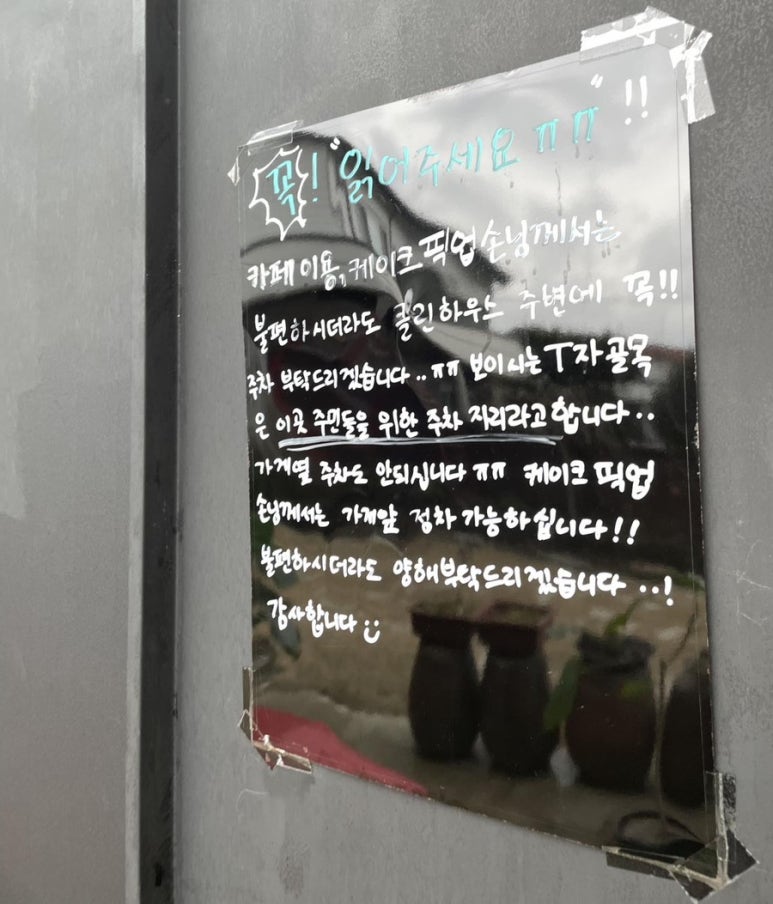 꼭! "읽어주세요 ㅠㅠ" !!
카페이용, 케이크 픽업 손님께서는
불편하시더라도 클린하우스 주변에 꼭!!
주차 부탁드리겠습니다.. ㅠㅠ 보이시는 T자골목
은 이곳 주민들을 위한 주차 자리라고 합니다..
가게옆 주차도 안되십니다 ㅠㅠ 케이크 픽업
손님께서는 가게앞 정차 가능하십니다!!
불편하시더라도 양해부탁드리겠습니다..!
감사합니다